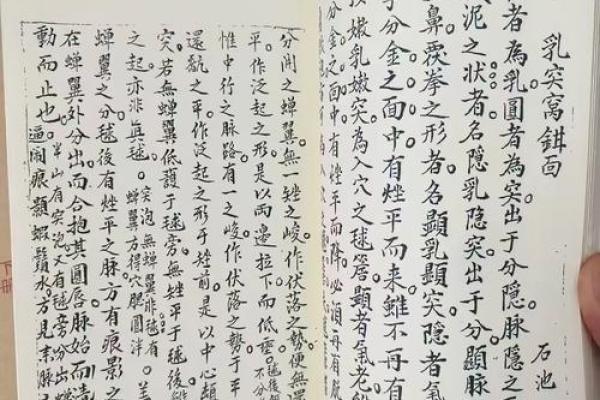 乳突窩鉗面 石池
者為乳圓者為突出于分隱脉隱之
泥之状者名隱乳隐突出于分顯脉
鼻覆拳之形者名顯乳顯突隱者
于分金之面中有矬平而来雖不再有
嫩乳嫩突為入穴之毬簷顯者氣老
分金之面中有矬平而降必須再有
分開之蟬翼無一矬之峻作伏落之勢便無還
平作泛起之形是以两邉拉下而低垂
惟中行之脉路有一之峻作伏落之勢于平
還翫之平作泛起之形于矬前是以中心顛
突若無蟬翼低護于毬旁無矬平于毬後
之起亦非真毬 突泡無蟬翼非毬有
蟬翼方得穴暖圓泮
蟬翼之分毬後有矬平之脉方有痕影之
在蟬翼外分出而合抱其圓唇脉始而清
動而止也 半山有突泡又有毬旁分出
逼闹痕顯蝦鬚水方見真脉